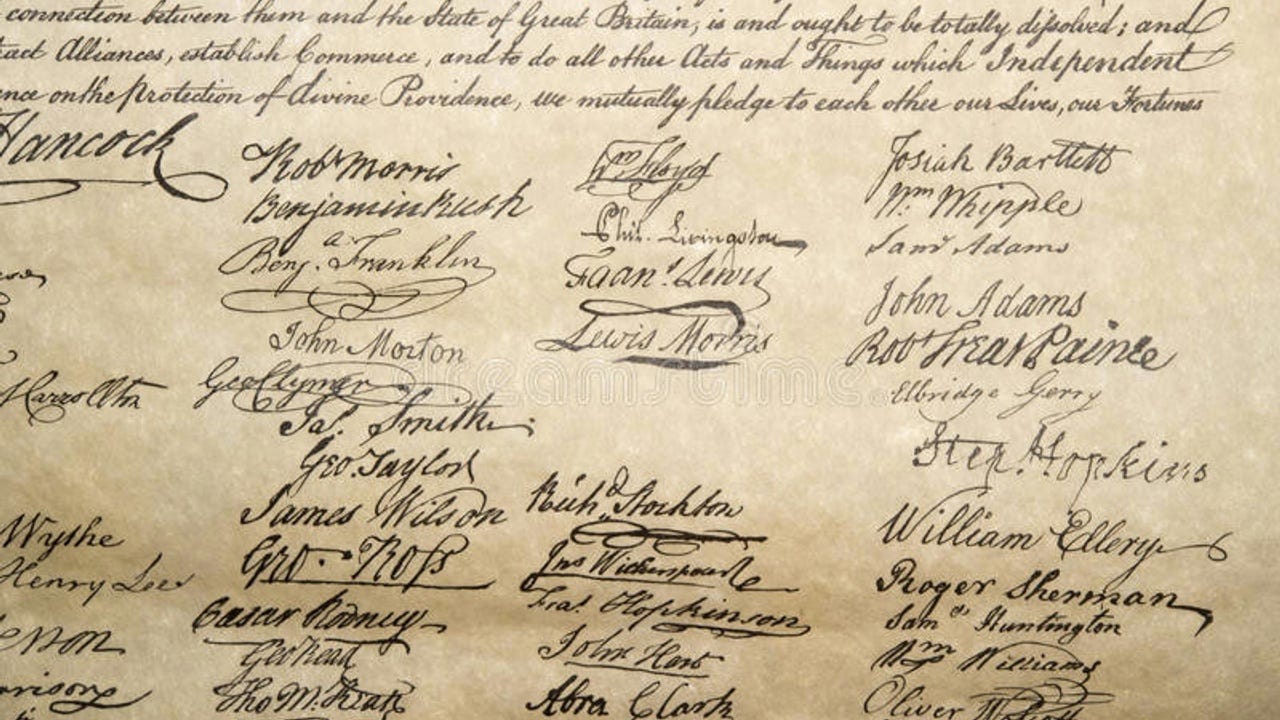 connection between them and the State of Great Britain, is and ought to be totally dissolved; and
tract Alliances, establish Commerce, and to do all other Acts and Things which Independent
ence on the protection of divine Providence, we mutually pledge to each other our Lives, our Fortunes
Hancock
Robt Morris
Benjamin Rush
Benja. Franklin
John Morton
Geo Clymer
Jas. Smith
Geo. Taylor
James Wilson
Geo. Ross
Caesar Rodney
Geo Read
Tho M:Kean
Wm Floyd
Phil. Livingston
Frans. Lewis
Lewis Morris
Richd. Stockton
Jno Witherspoon
Fras. Hopkinson
John Hart
Abra Clark
Josiah Bartlett
Wm Whipple
Saml Adams
John Adams
Robt Treat Paine
Elbridge Gerry
Step. Hopkins
William Ellery
Roger Sherman
Saml Huntington
Wm Williams
Oliver Wolcott
Carrollton
Wythe
Henry Lee
erson
rrison
dreamstime